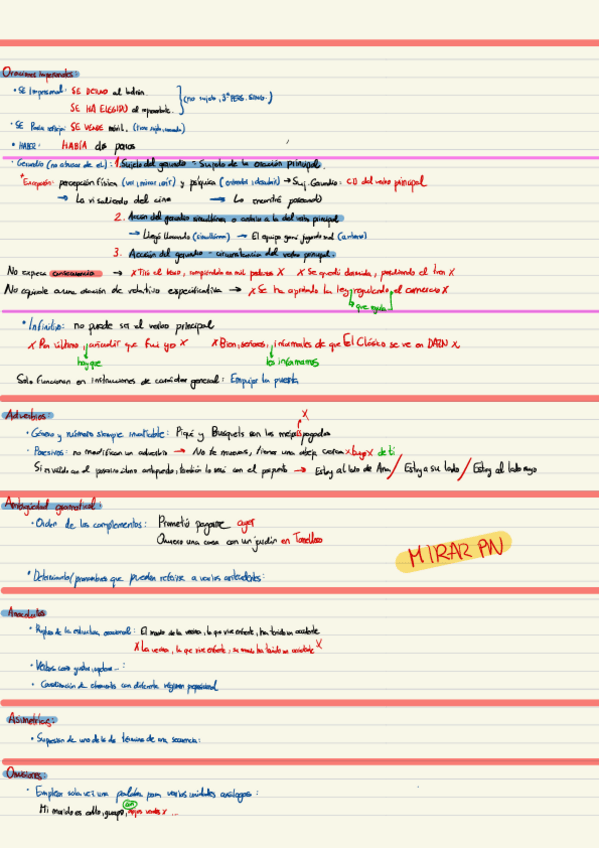 Oraciones impersonales
• SE Impersonal: SE DETUVO al ladrón. (no sujeto, 3ª PERS. SING.)
SE HA ELEGIDO al responsable.
• SE Pasiva refleja: SE VENDE móvil. (tiene sujeto, )
• HABER: HABÍA dos perros
• Gerundio (no abusar de él): 1. Sujeto del gerundio = Sujeto de la oración principal.
* Excepción: percepción física (ver, mirar, oír) y psíquica (entender, descubrir) → Suj. Gerundio: CD del verbo principal
→ Lo vi saliendo del cine → Lo encontré paseando
2. Acción del gerundio simultánea o anterior a la del verbo principal
→ Llegó llorando (simultánea) → El equipo ganó jugando mal (anterior)
3. Acción del gerundio = circunstancia del verbo principal.
No expresa consecuencia → X Tiró el vaso, rompiéndolo en mil pedazos X X Se quedó dormida, perdiendo el tren X
No equivale a una oración de relativo especificativa → X Se ha aprobado la ley regulando el comercio X
que regula
• Infinitivo: no puede ser el verbo principal
X Por último, añadir que fui yo X X Bien, señores, informarles de que El Clásico se ve en DAZN X
hay que les informamos
Solo funcionan en instrucciones de carácter general: Empujar la puerta
Adverbios:
• Género y número siempre invariable: Piqué y Busquets son los mejores pagados
X
• Posesivos: no modifican un adverbio → No te muevas, tienes una abeja cerca X tuya X de ti
→ Estoy al lado de Ana / Estoy a su lado / Estoy al lado suyo
Ambigüedad gramatical:
• Orden de los complementos: Prometió pagarme ayer
Quiero una casa con un jardín en Tomelloso
MIRAR PW
• Determinantes/pronombres que pueden referirse a varios antecedentes:
Anacolutos
• Ruptura de la estructura oracional: El marido de la vecina, la que vive enfrente, ha tenido un accidente
X La vecina, la que vive enfrente, su marido ha tenido un accidente X
• Verbos como gustar, :
• Coordinación de elementos con diferente régimen preposicional
Asimetrías:
• Supresión de uno de los términos de una secuencia:
Omisiones
• Emplear sola vez una palabra para varias unidades análogas:
con
Mi marido es alto, guapo, ojos verdes X ...